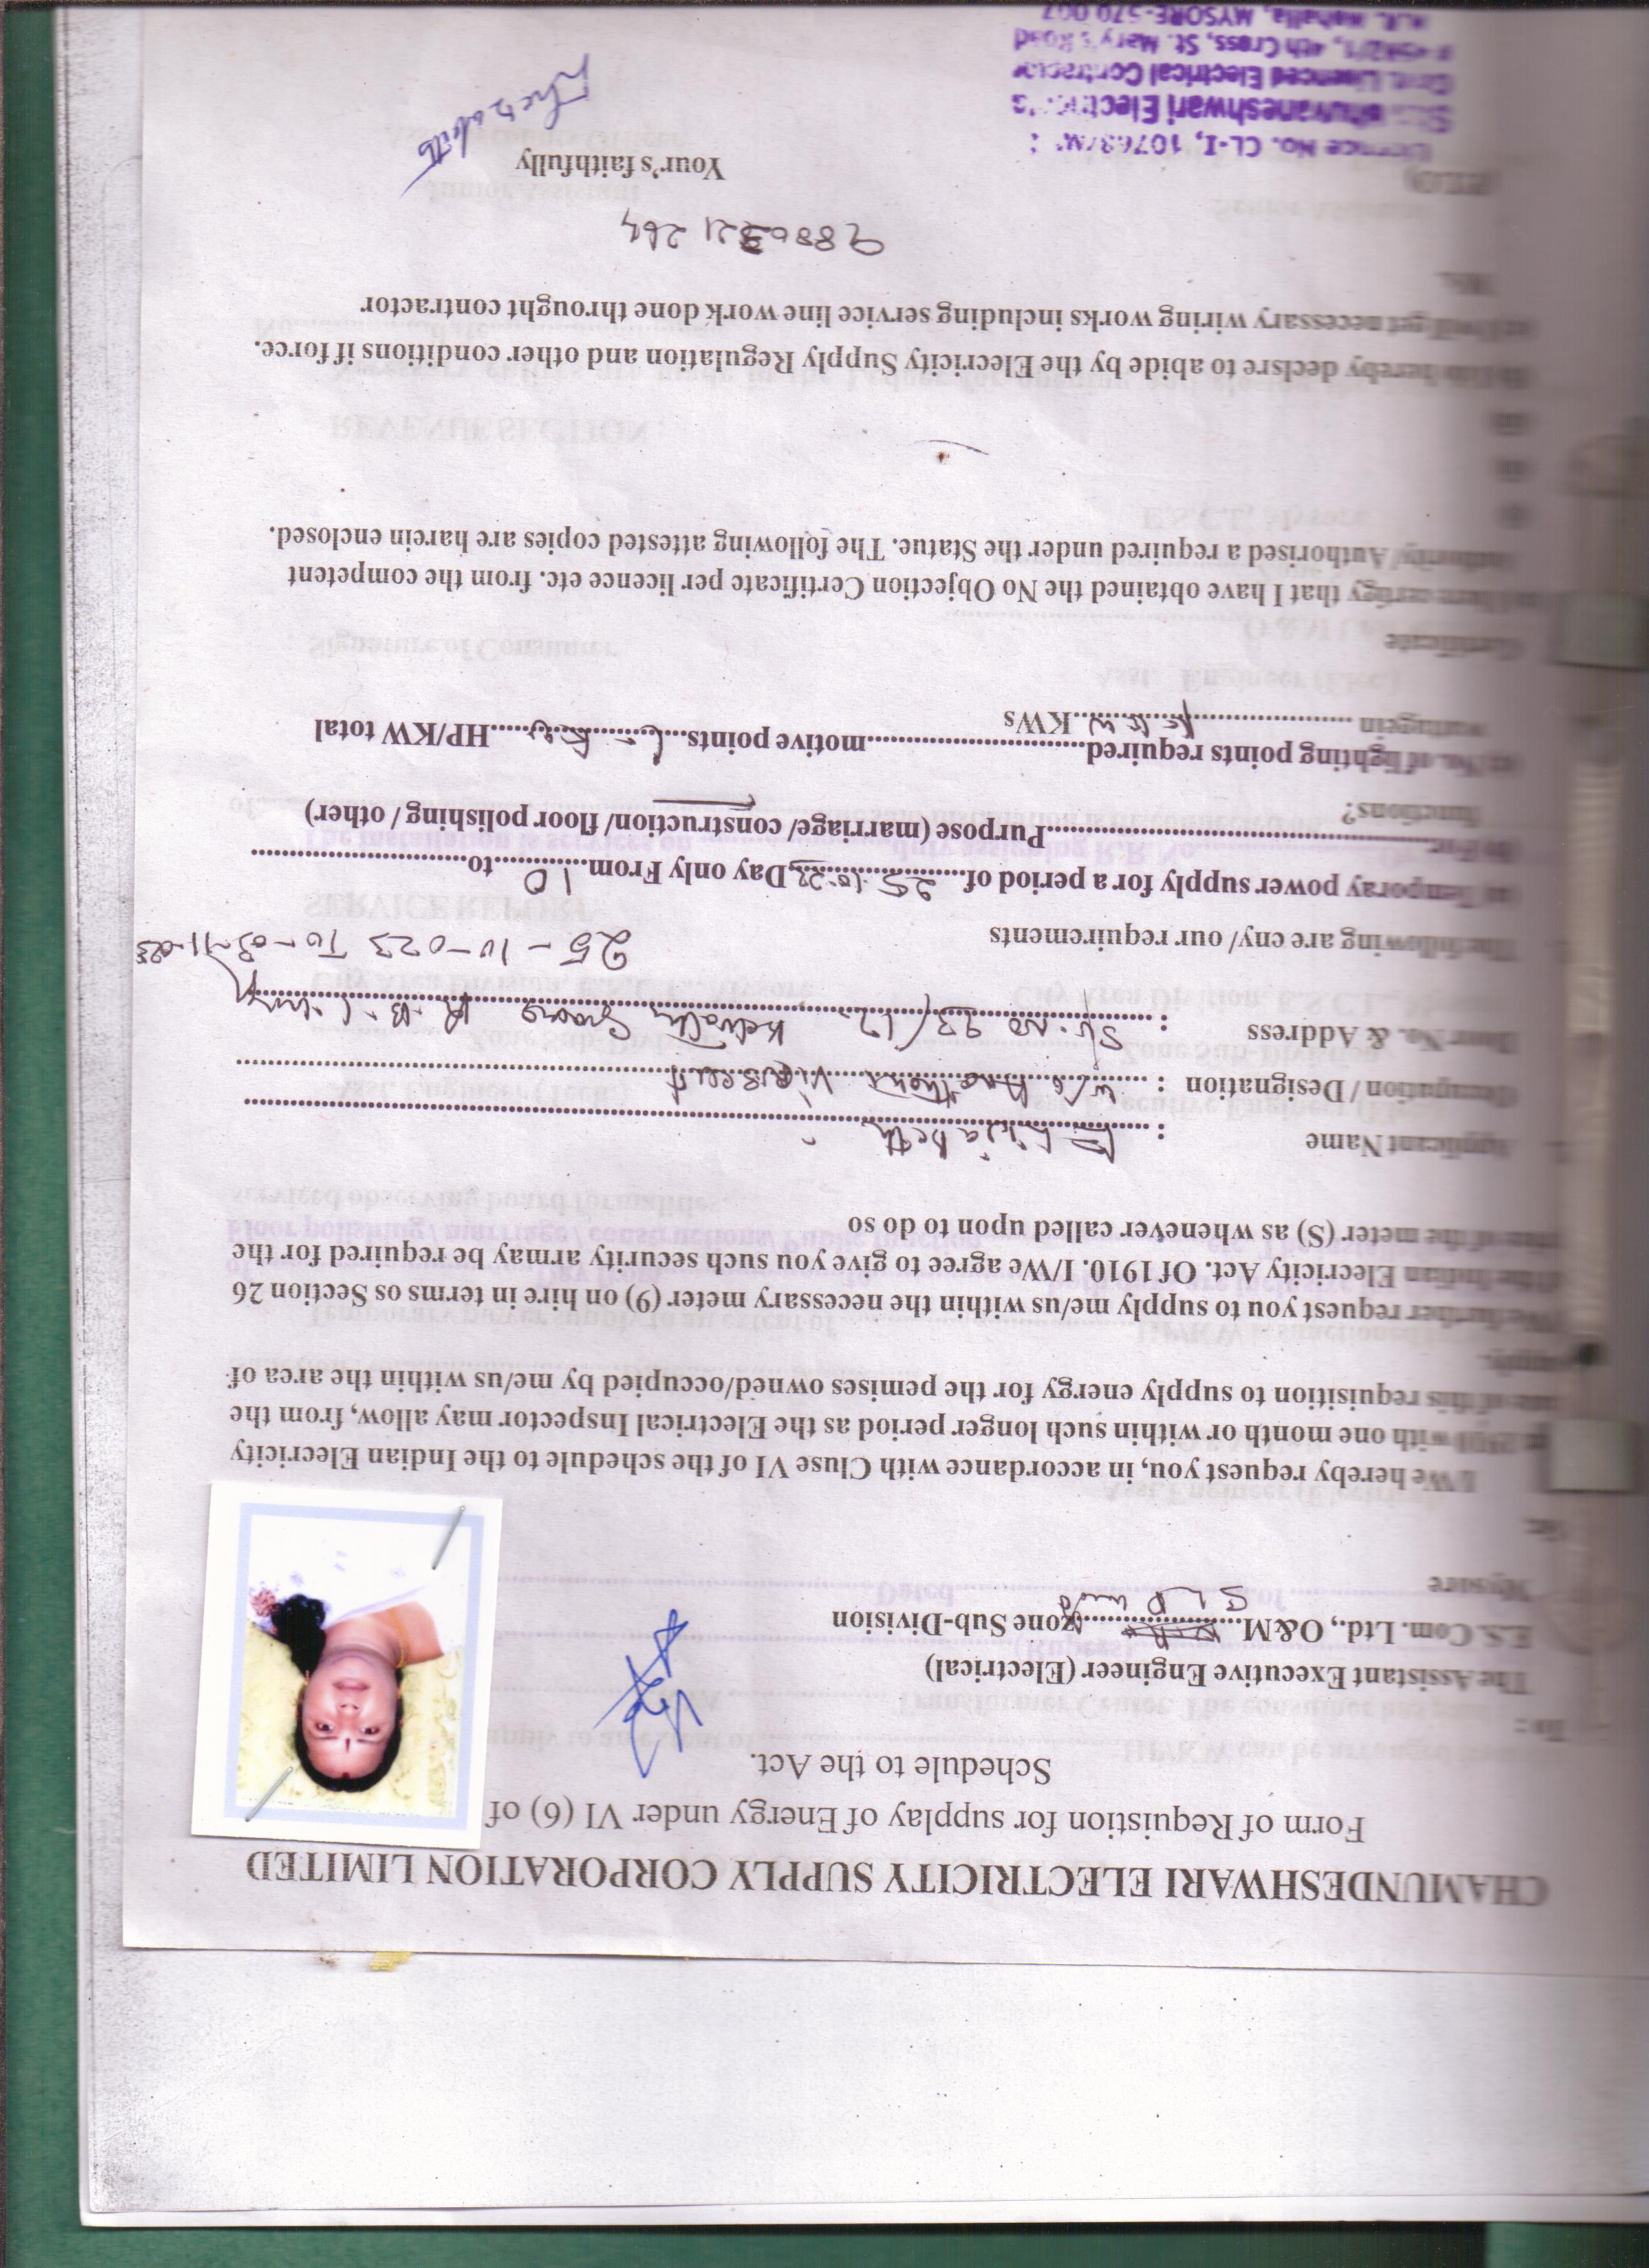 CHAMUNDESHWARI ELECTRICITY SUPPLY CORPORATION LIMITED
Form of Requistion for supplay of Energy under VI (6) of
Schedule to the Act.
To :
The Assistant Executive Engineer (Electrical)
E.S. Com. Ltd., O&M.................zone Sub-Division
Mysore
I/We hereby request you, in accordance with Cluse VI of the schedule to the Indian Elecricity
with one month or within such longer period as the Electrical Inspector may allow, from the
of this requisition to supply energy for the pemises owned/occupied by me/us within the area of
supply.
I/We further request you to supply me/us within the necessary meter (9) on hire in terms os Section 26
of the Indian Elecricity Act. Of 1910. I/We agree to give you such security armay be required for the
of the meter (S) as whenever called upon to do so
Applicant Name : Elizabeth
Occupation / Designation : W/o Anthoni
Door No. & Address :
The following are eny/ our requirements 25-10-023 To-03-11-023
a) Temporay power supply for a period of 25-10-23 Day only From 10 to
b) For Purpose (marriage/ construction/ floor polishing / other)
functions?
c) No. of lighting points required motive points HP/KW total
KWs
Certificate
that I have obtained the No Objection Certificate per licence etc. from the competent
Authority/ Authorised a required under the Statue. The following attested copies are harein enclosed.
hereby declsre to abide by the Elecricity Supply Regulation and other conditions if force.
get necessary wiring works including service line work done throught contractor
Your's faithfully
Licence No. CL-I,
Bhuvaneshwari
Govt. Lisenced Electrical Contractor
4th Cross, St. Mary's Road
N.R. Mohalla, MYSORE-570 007